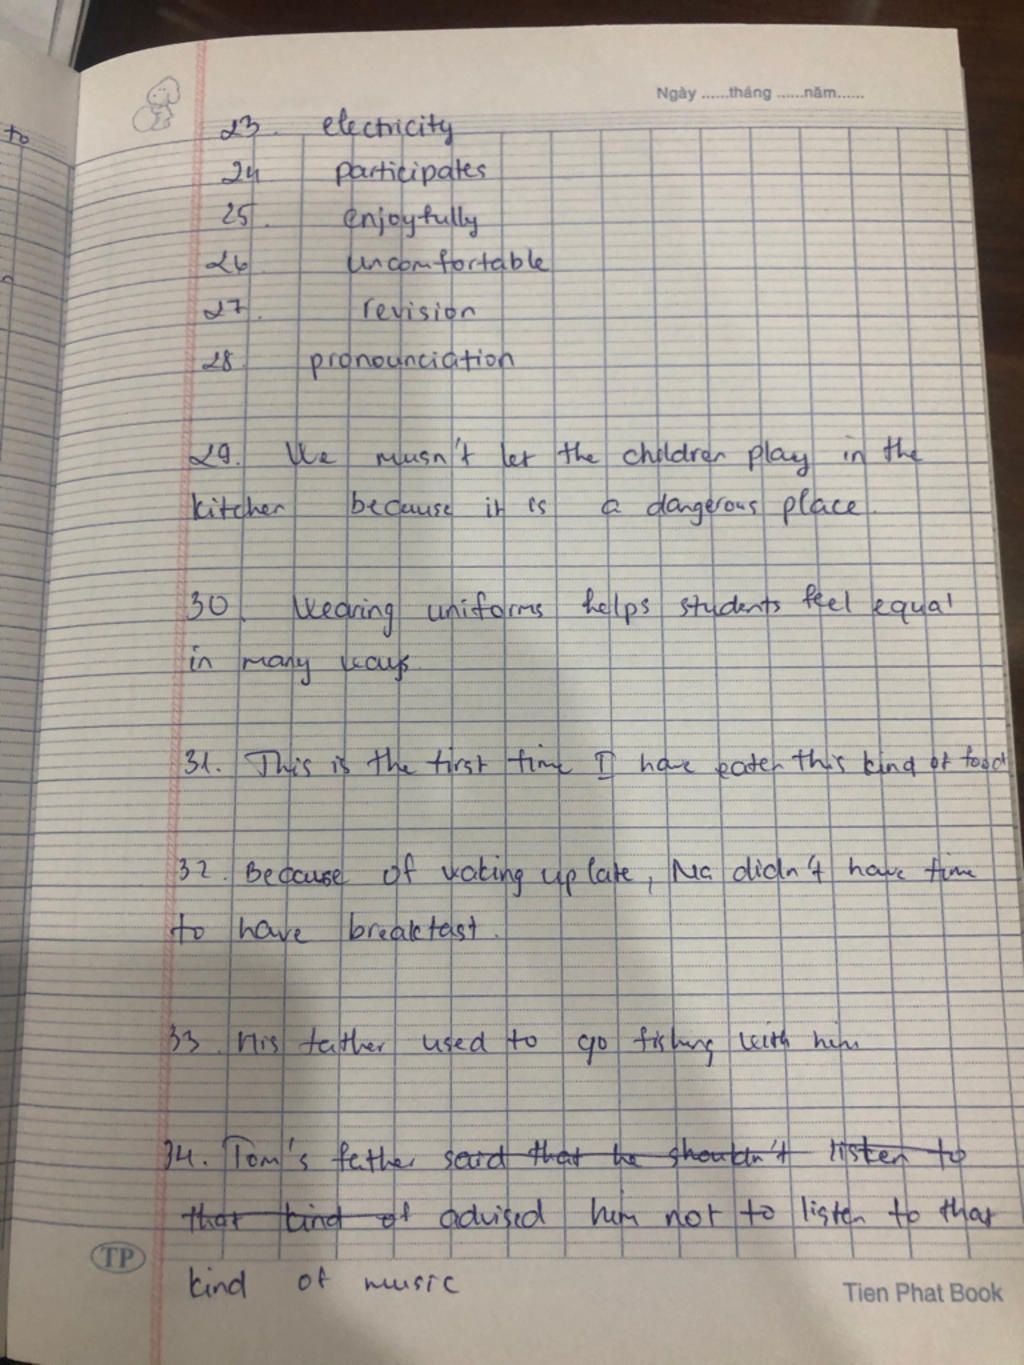 Ngày ......tháng ......năm......
to
23. electricity
24 participates
25. enjoyfully
26 uncomfortable
27. revision
28 pronounciation
29. We musn't let the children play in the
kitchen because it is a dangerous place.
30. Wearing uniforms helps students feel equal
in many ways.
31. This is the first time I have eaten this kind of food
32. Because of waking up late, Na didn't have time
to have breakfast.
33. His father used to go fishing with him
34. Tom's father said that he shouldn't listen to
that kind of advised him not to listen to that
kind of music
TP
Tien Phat Book